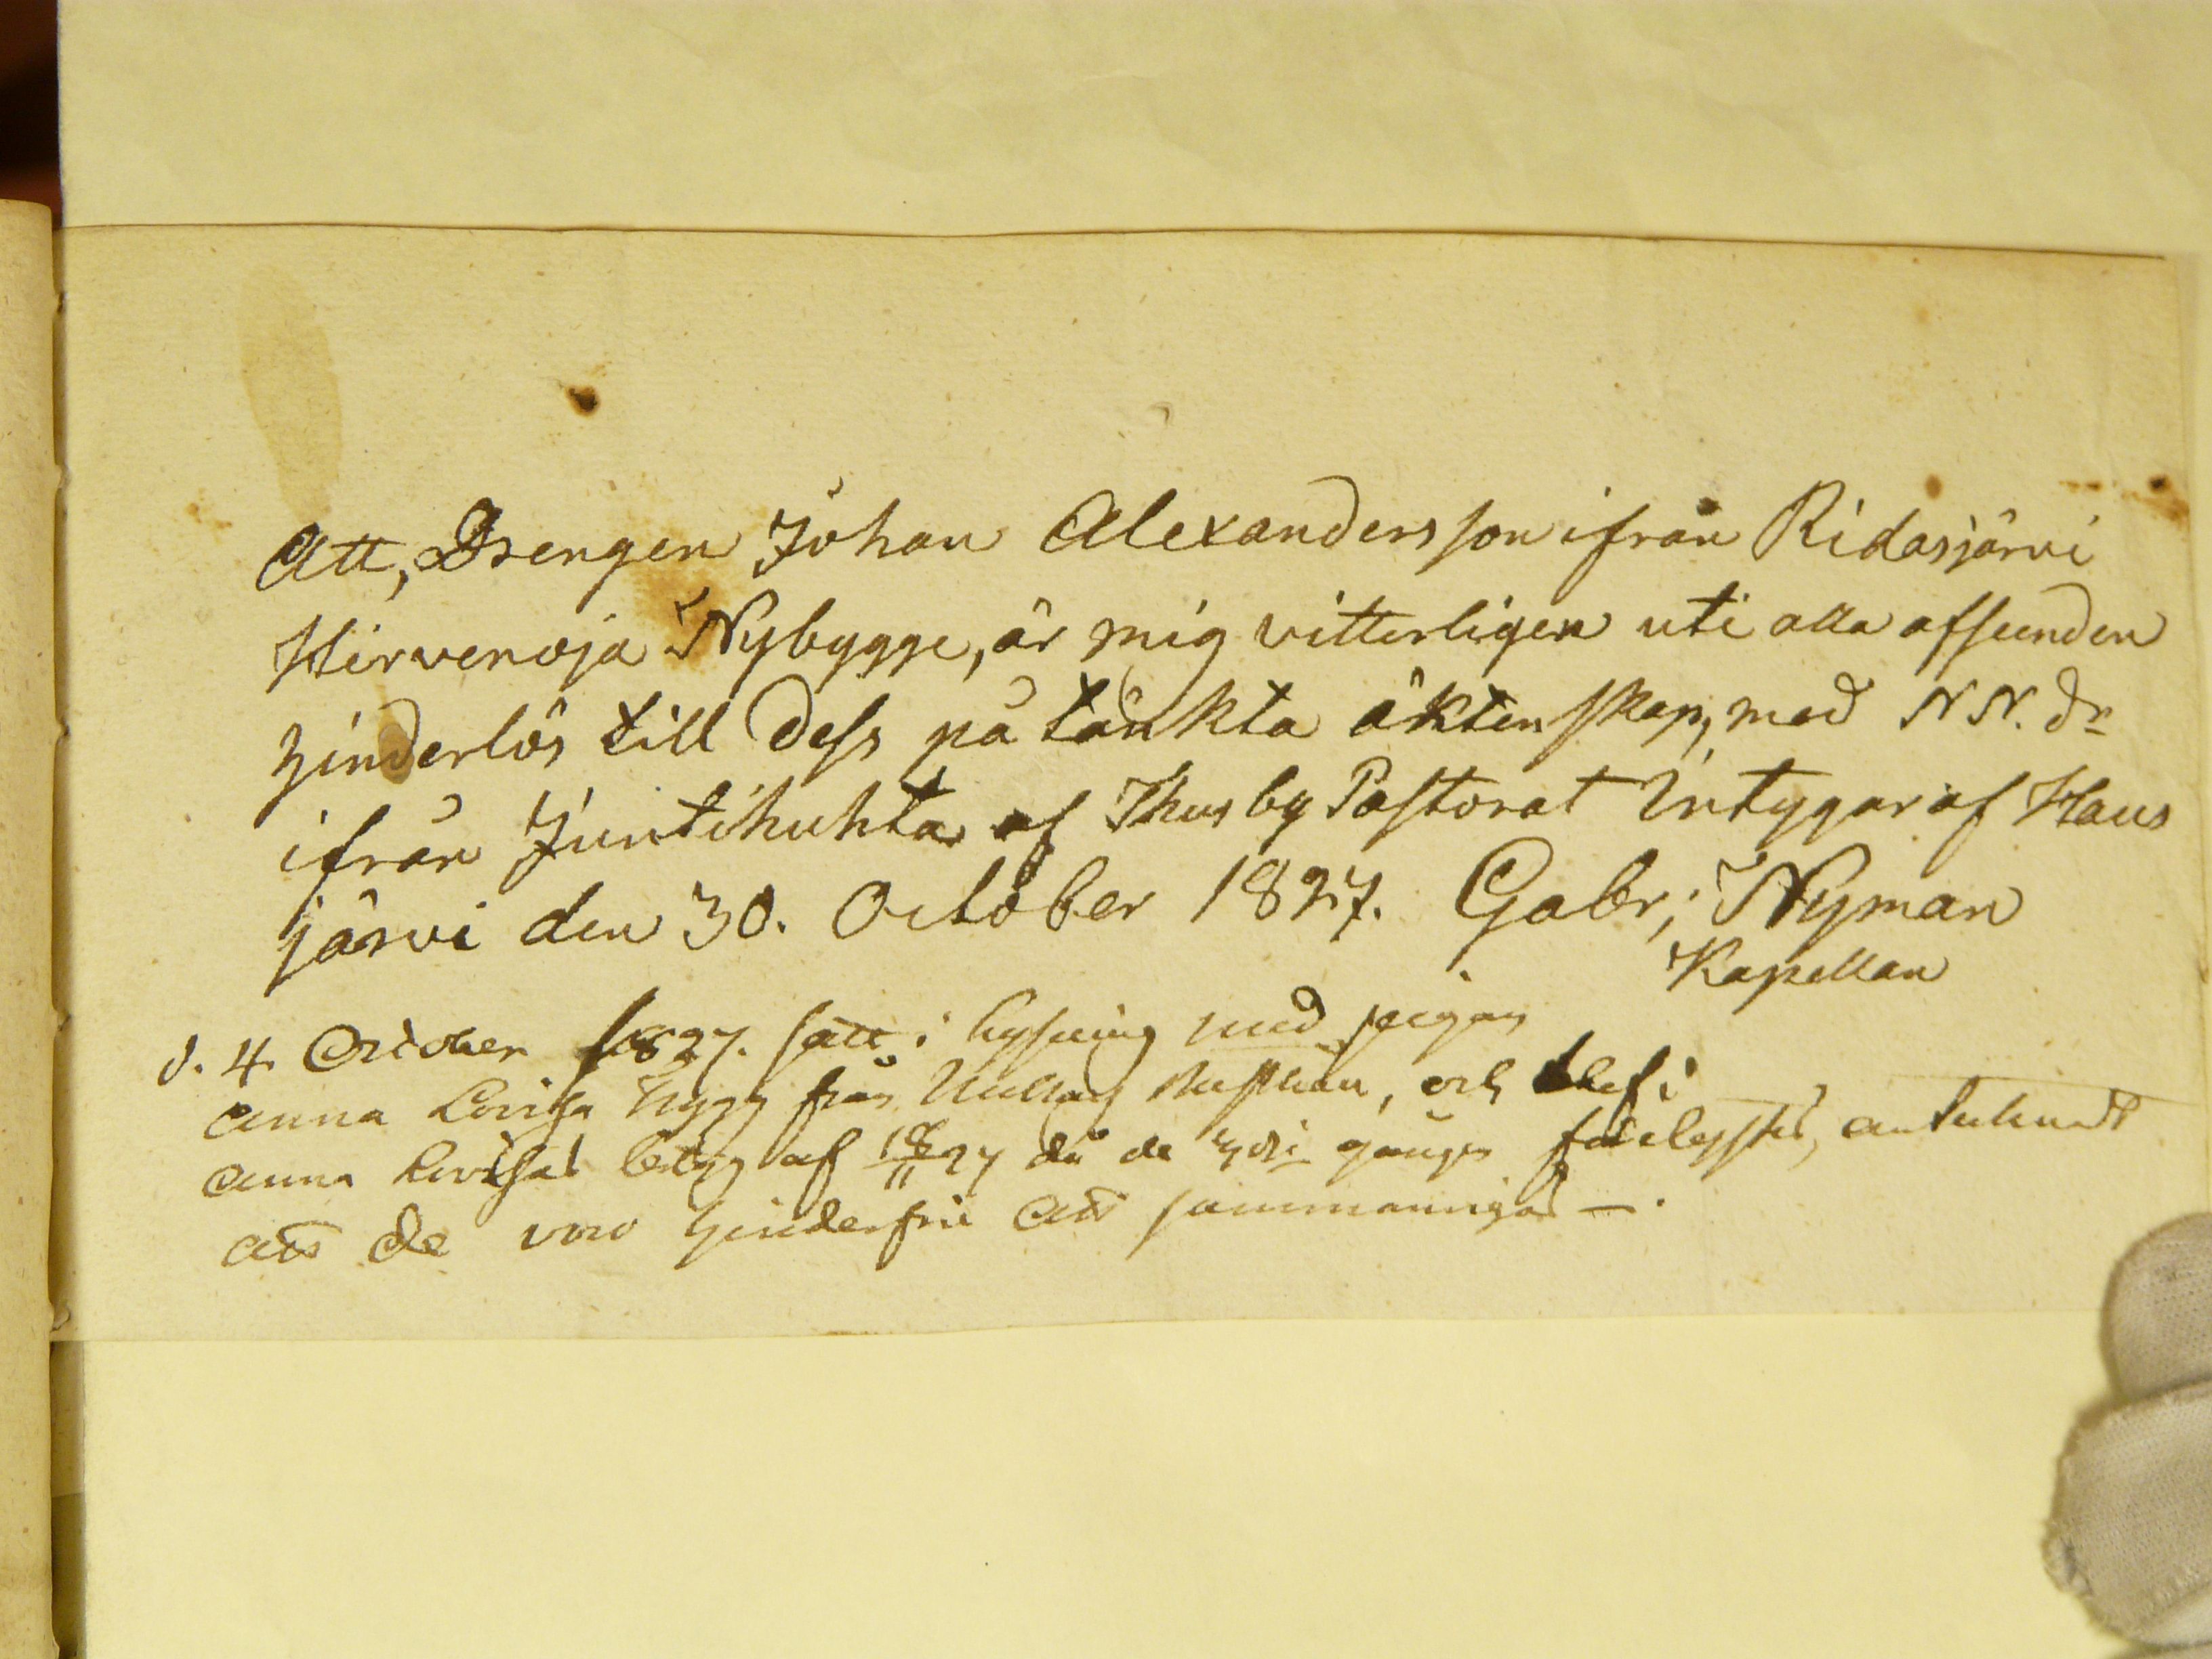 Att, Drengen Johan Alexandersson ifrån Ridasjärvi
Hirvenoja Nybygge, är mig vitterligen uti alla afseenden
hinderlös till dess på tänkta äktenskap, med N N. dr
ifrån Juntihuhta af Thusby Pastorat Intygar af Haus
järvi den 30. October 1827. Gabr; Nyman
Kapellan
d. 4 October 1827. satt i lysning med pigan
Anna Lovisa från och blef i
Anna Lovisas betyg af 18/11 27 då de 3dje gången antecknadt
att de voro hinderfrie att sammanvigas —.